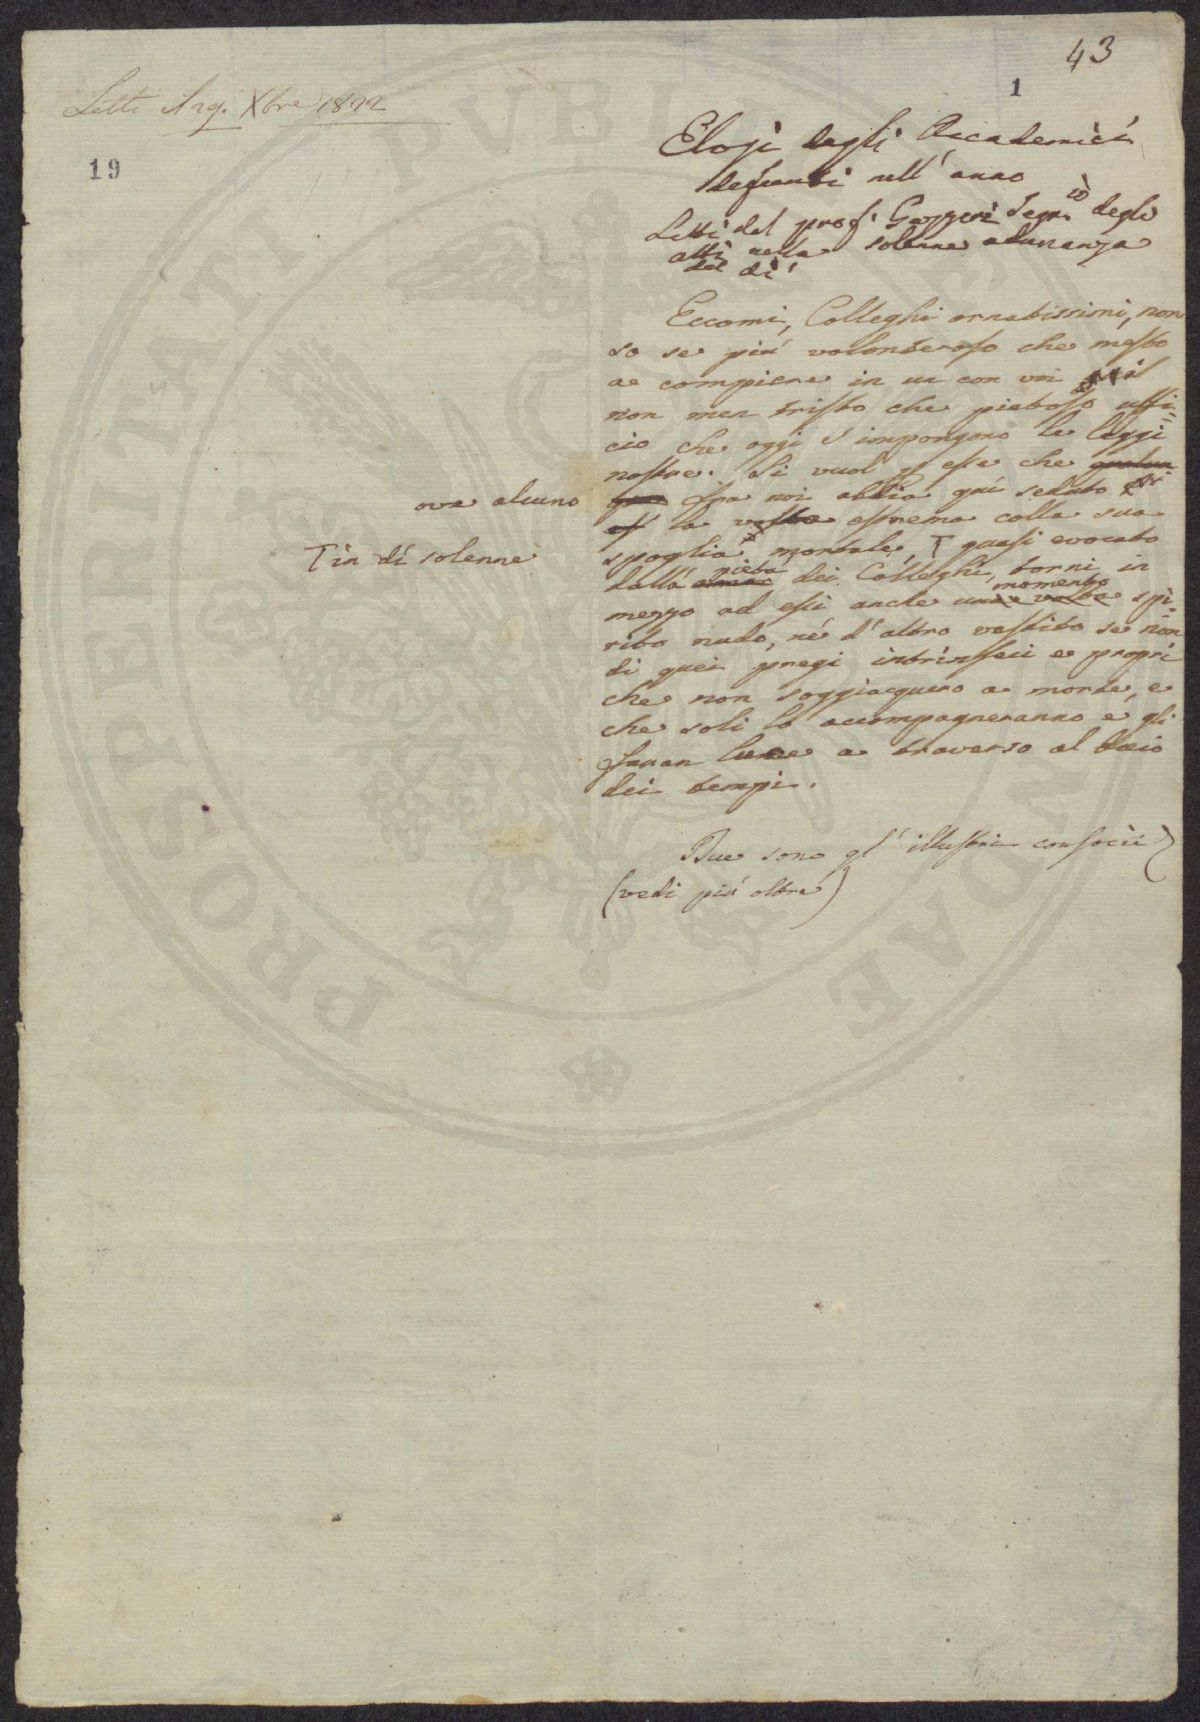 43
1
Letti Arg. Xbre 1822
19
Elogi degli Accademici
defunti nell' anno
Letti dal prof. Gazzeri Segr.io degli
atti nella solenne adunanza
del dì
Eccomi, Colleghi ornatissimi, non
so se più volonteroso che mesto
a compiere in un con voi il
non men tristo che pietoso uffi=
cio che oggi c'impongono le leggi
nostre. Si vuol p esse che qualun
ove alcuno
que fra noi abbia quì seduto
la vostra estrema colla sua
spoglia mortale, T quasi evocato
T in dì solenne
dalla pietà dei Colleghi, torni in
mezzo ad essi anche una volta momento spi=
rito nudo, nè d'altro vestito se non
di quei pregi intrinseci e propri
che non soggiacquero a morte, e
che soli lo accompagneranno e gli
faran luce a traverso al buio
dei tempi.
Due sono gl' illustri consocii)
(vedi più oltre)
PROSPERITATI PVBL